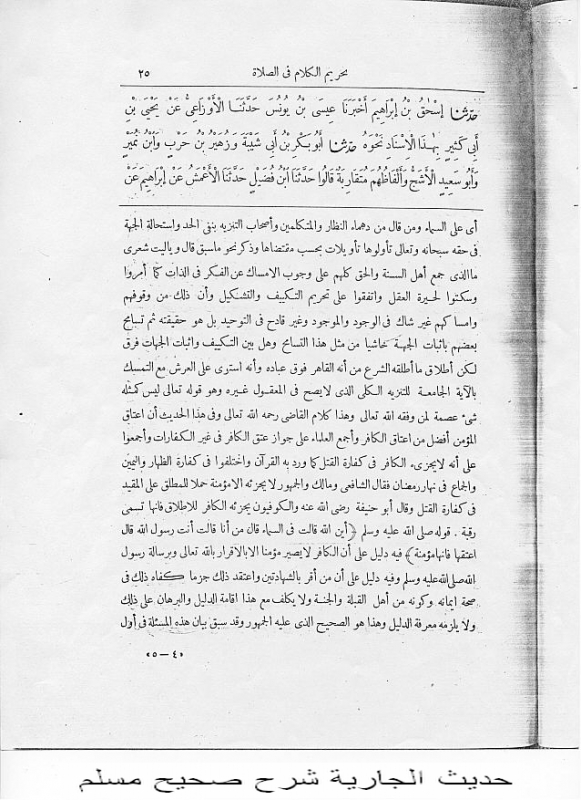 تحريم الكلام فى الصلاة ٢٥
حَدَّثَنَا إِسْحَقُ بْنُ إِبْرَاهِيمَ أَخْبَرَنَا عِيسَى بْنُ يُونُسَ حَدَّثَنَا الْأَوْزَاعِىُّ عَنْ يَحْيَى بْنِ
أَبِى كَثِيرٍ بِهٰذَا الْإِسْنَادِ نَحْوَهُ حَدَّثَنَا أَبُو بَكْرِ بْنُ أَبِى شَيْبَةَ وَزُهَيْرُ بْنُ حَرْبٍ وَابْنُ نُمَيْرٍ
وَأَبُو سَعِيدٍ الْأَشَجُّ وَأَلْفَاظُهُمْ مُتَقَارِبَةٌ قَالُوا حَدَّثَنَا ابْنُ فُضَيْلٍ حَدَّثَنَا الْأَعْمَشُ عَنْ إِبْرَاهِيمَ عَنْ
أى على السماء ومن قال من دهماء النظار والمتكلمين وأصحاب التنزيه بنفى الحد واستحالة الجهة
فى حقه سبحانه وتعالى تأولوها تأويلات بحسب مقتضاها وذكر نحو ماسبق قال وياليت شعرى
ما الذى جمع أهل السنة والحق كلهم على وجوب الامساك عن الفكر فى الذات كما أمروا
وسكتوا لحيرة العقل واتفقوا على تحريم التكييف والتشكيل وأن ذلك من وقوفهم
وامساكهم غير شاك فى الوجود والموجود وغير قادح فى التوحيد بل هو حقيقته ثم تسامح
بعضهم باثبات الجهة خاشيا من مثل هذا التسامح وهل بين التكييف واثبات الجهات فرق
لكن أطلاق ما أطلقه الشرع من أنه القاهر فوق عباده وأنه استوى على العرش مع التمسك
بالآية الجامعة للتنزيه الكلى الذى لايصح فى المعقول غيره وهو قوله تعالى ليس كمثله
شىء عصمة لمن وفقه الله تعالى وهذا كلام القاضى رحمه الله تعالى وفى هذا الحديث أن اعتاق
المؤمن أفضل من اعتاق الكافر وأجمع العلماء على جواز عتق الكافر فى غير الكفارات وأجمعوا
على أنه لايجزىء الكافر فى كفارة القتل كما ورد به القرآن واختلفوا فى كفارة الظهار واليمين
والجماع فى نهار رمضان فقال الشافعى ومالك والجمهور لايجزئه الامؤمنة حملا للمطلق على المقيد
فى كفارة القتل وقال أبو حنيفة رضى الله عنه والكوفيون يجزئه الكافر للاطلاق فانها تسمى
رقبة . قوله صلى الله عليه وسلم ﴿أين الله قالت فى السماء قال من أنا قالت أنت رسول الله قال
اعتقها فانها مؤمنة﴾ فيه دليل على أن الكافر لايصير مؤمنا الابالاقرار بالله تعالى وبرسالة رسول
الله صلى الله عليه وسلم وفيه دليل على أن من أقر بالشهادتين واعتقد ذلك جزما كفاه ذلك فى
صحة ايمانه وكونه من أهل القبلة والجنة ولا يكلف مع هذا اقامة الدليل والبرهان على ذلك
ولا يلزمه معرفة الدليل وهذا هو الصحيح الذى عليه الجمهور وقد سبق بيان هذه المسئلة فى أول
«٤ – ٥»
حديث الجارية شرح صحيح مسلم